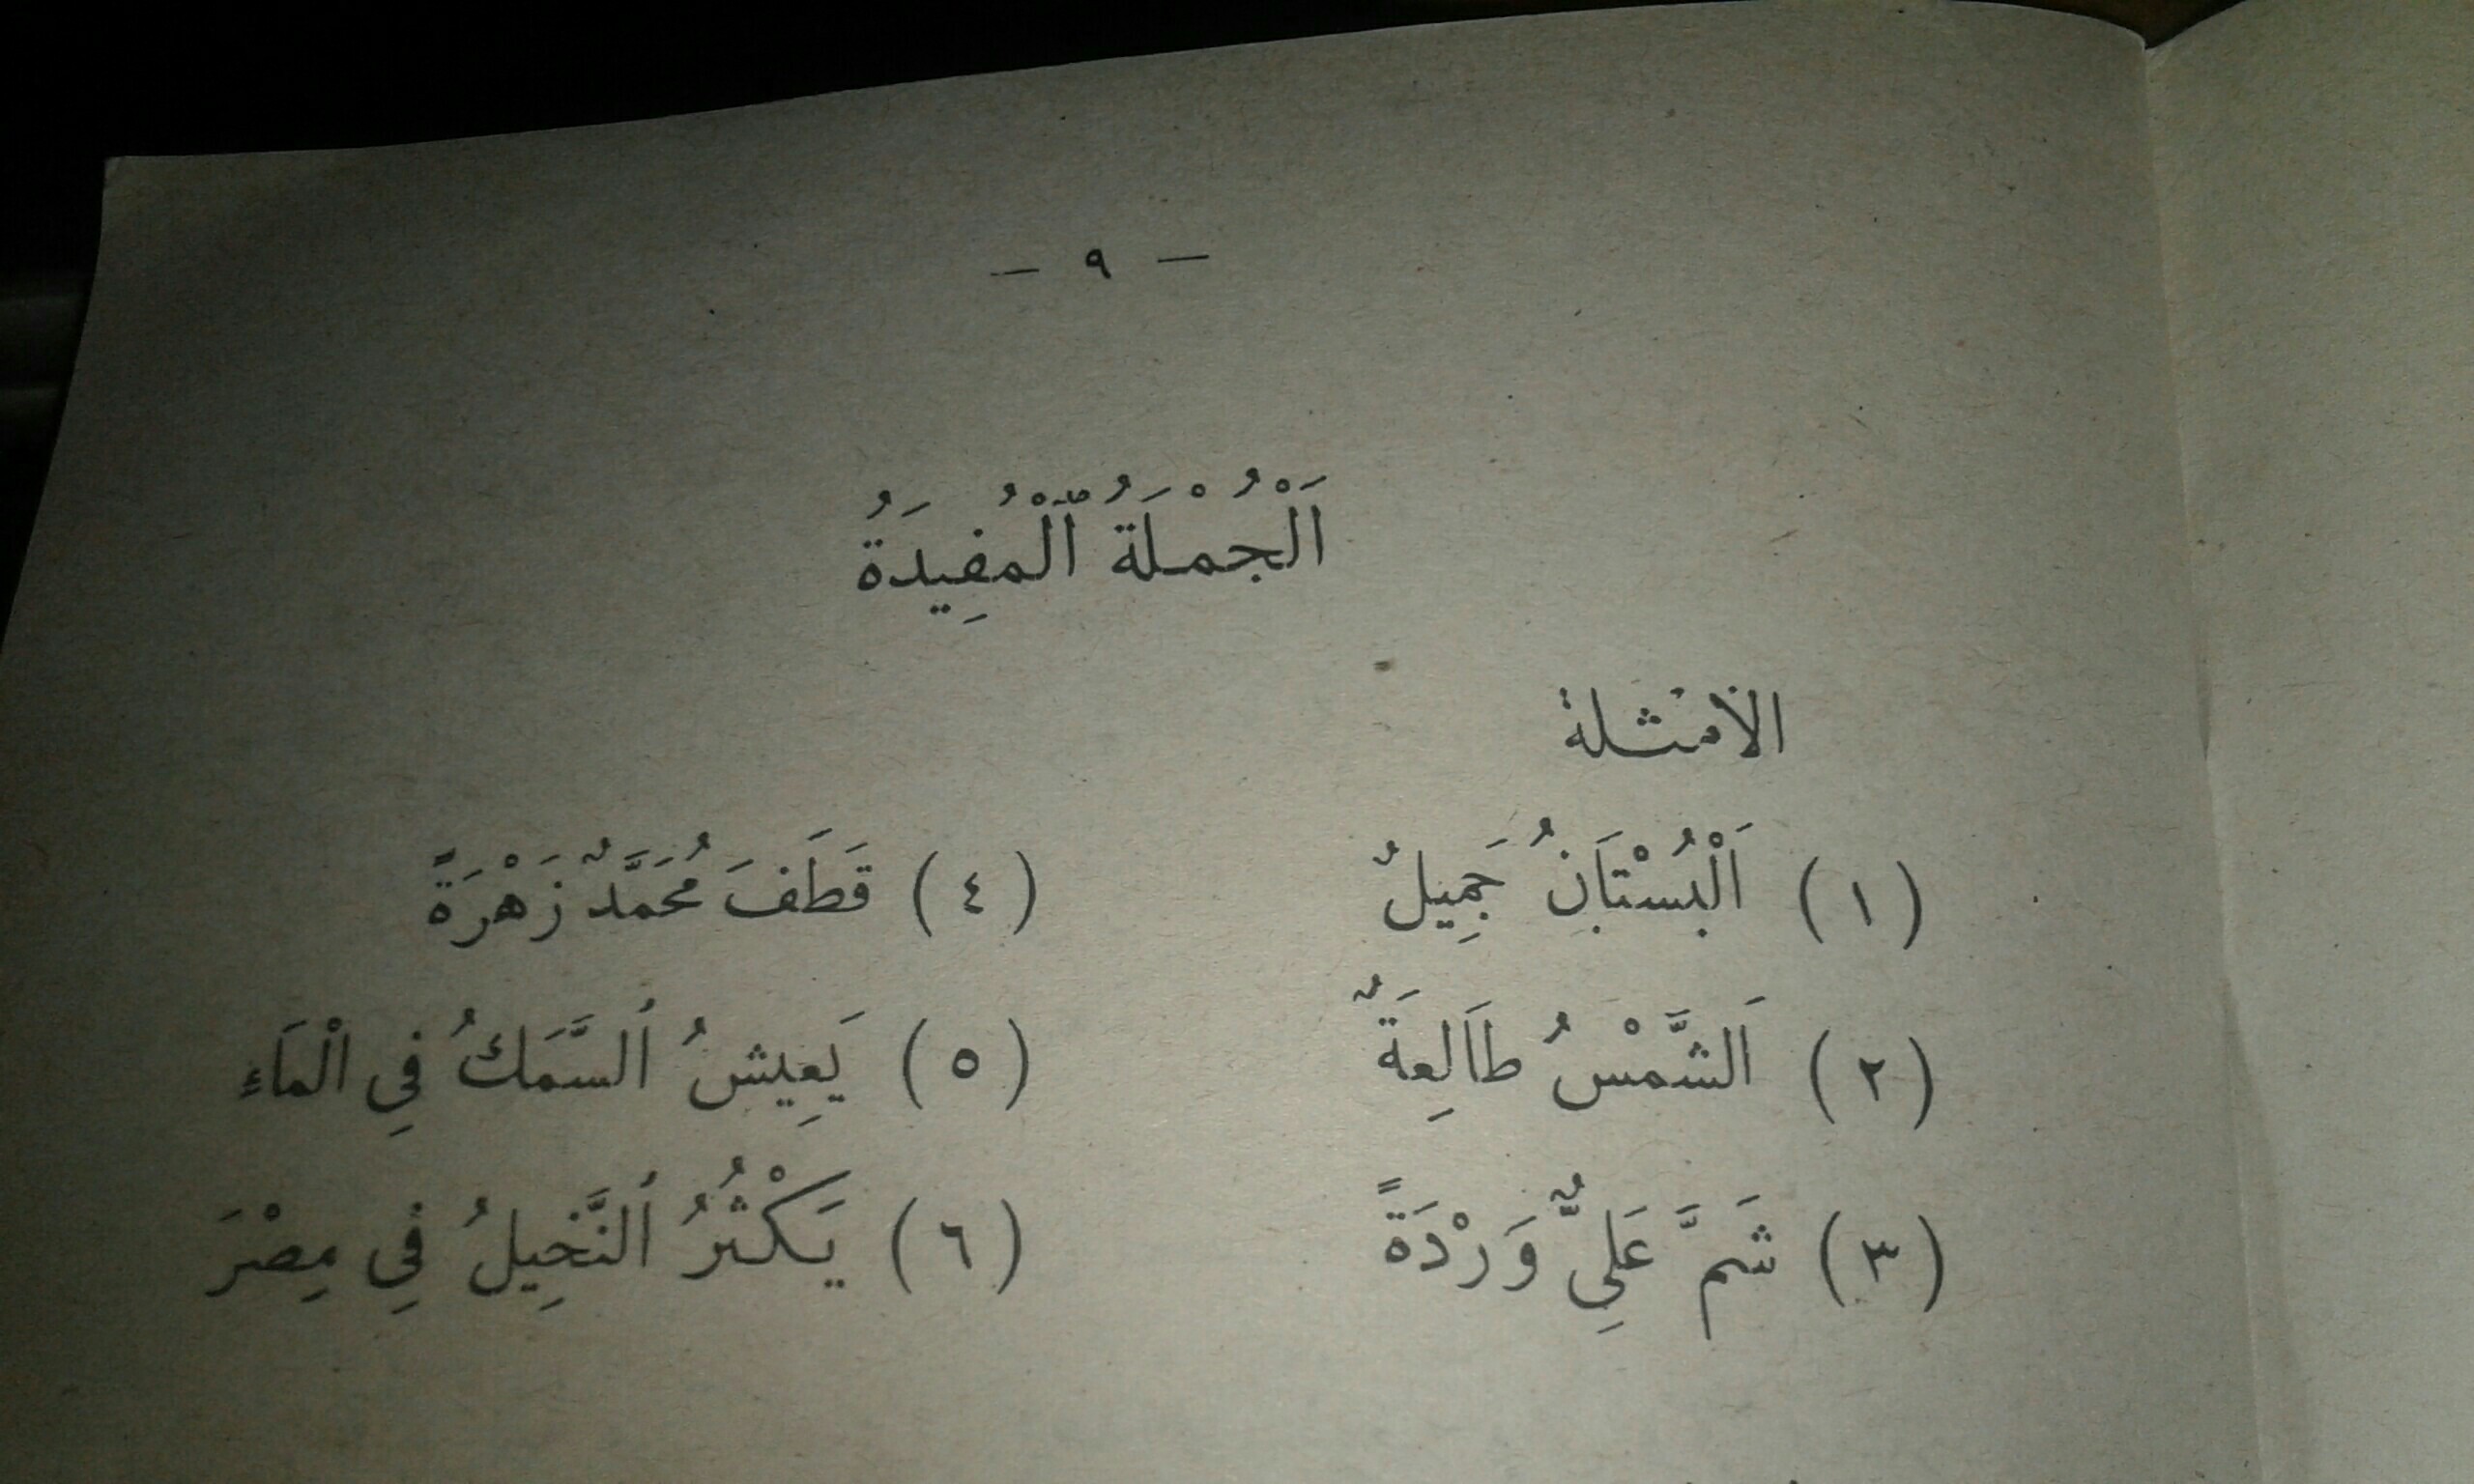 — ٩ —
اَلْجُمْلَةُ ٱلْمُفِيدَةُ
الأمثلة
(١) اَلْبُسْتَانُ جَمِيلٌ (٤) قَطَفَ مُحَمَّدٌ زَهْرَةً
(٢) اَلشَّمْسُ طَالِعَةٌ (٥) يَعِيشُ ٱلسَّمَكُ فِي الْمَاءِ
(٣) شَمَّ عَلِيٌّ وَرْدَةً (٦) يَكْثُرُ ٱلنَّخِيلُ فِي مِصْرَ